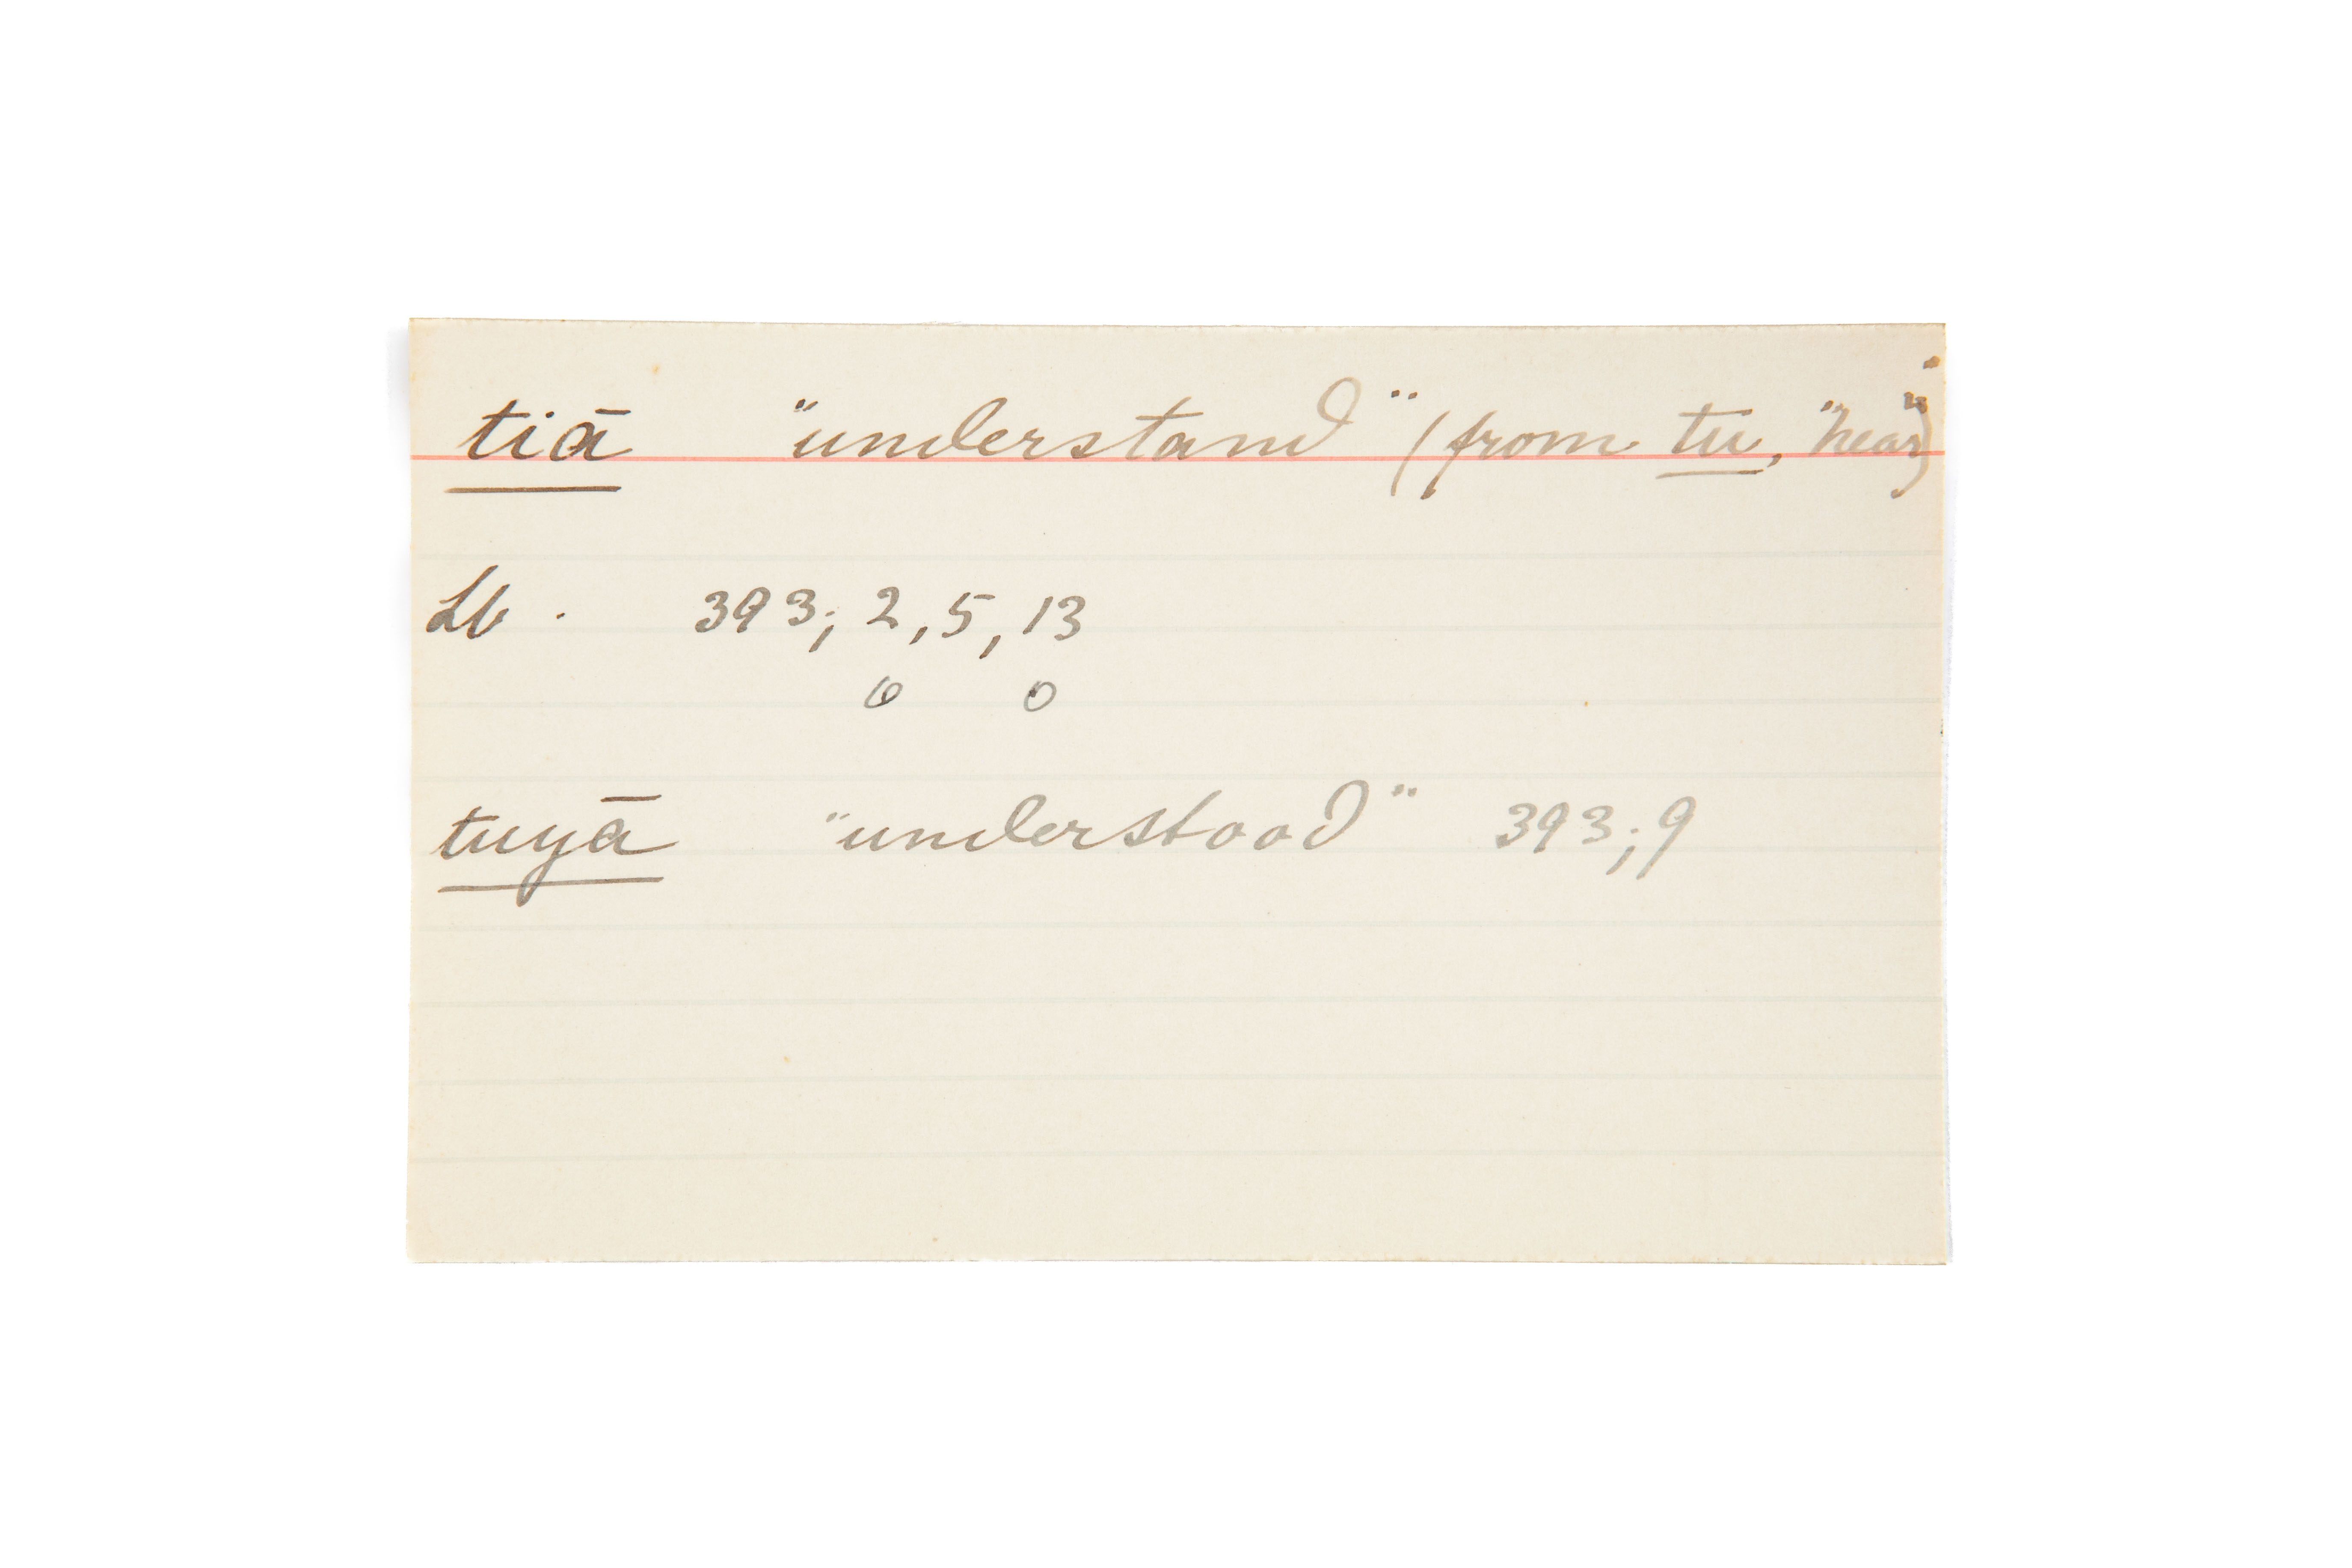 tiā "understand" (from tu, "hear")
Lb. 393; 2, 5, 13
o o
tuyā "understood" 393; 9